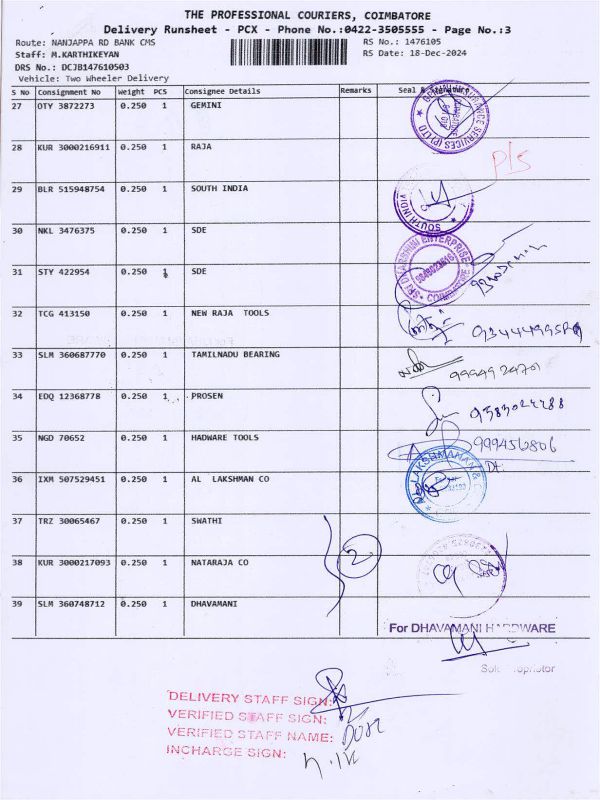 THE PROFESSIONAL COURIERS, COIMBATORE
Delivery Runsheet - PCX - Phone No.:0422-3505555 - Page No.:3
Route: NANJAPPA RD BANK CMS RS No.: 1476105
Staff: M.KARTHIKEYAN RS Date: 18-Dec-2024
DRS No.: DCJB147610503
Vehicle: Two Wheeler Delivery
S No Consignment No Weight PCS Consignee Details Remarks Seal &
27 OTY 3872273 0.250 1 GEMINI
28 KUR 3000216911 0.250 1 RAJA
P/S
29 BLR 515948754 0.250 1 SOUTH INDIA
30 NKL 3476375 0.250 1 SDE
31 STY 422954 0.250 1 SDE
SRI DHARSHNI ENTERPRISE
COIMBATORE
32 TCG 413150 0.250 1 NEW RAJA TOOLS
33 SLM 360687770 0.250 1 TAMILNADU BEARING
34 EDQ 12368778 0.250 1 PROSEN
35 NGD 70652 0.250 1 HADWARE TOOLS
36 IXM 507529451 0.250 1 AL LAKSHMAN CO
37 TRZ 30065467 0.250 1 SWATHI
2
38 KUR 3000217093 0.250 1 NATARAJA CO
39 SLM 360748712 0.250 1 DHAVAMANI
For DHAVAMANI HARDWARE
DELIVERY STAFF SIGN:
VERIFIED STAFF SIGN:
VERIFIED STAFF NAME:
INCHARGE SIGN: